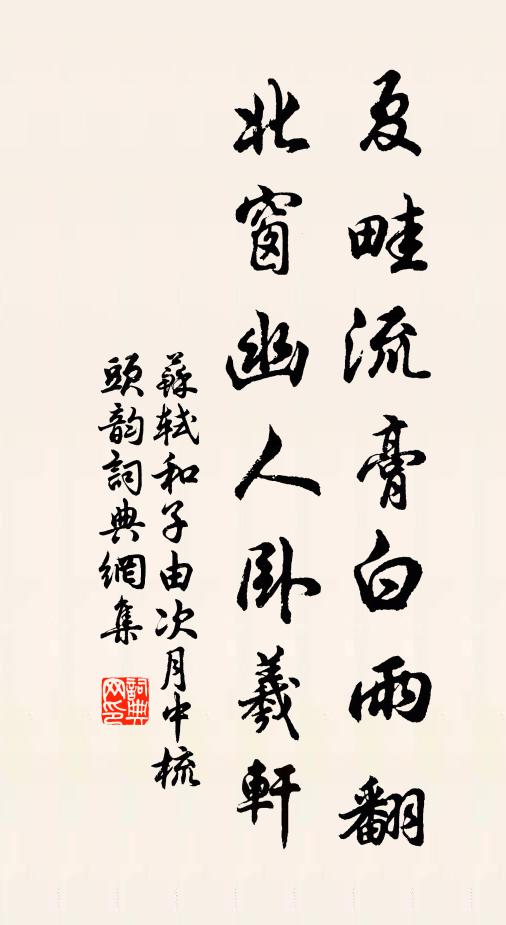 夏畦流膏白雨翻
北窗幽人卧羲軒
蘇軾和子由次月中梳
頭韵詞典網集
詞典网印